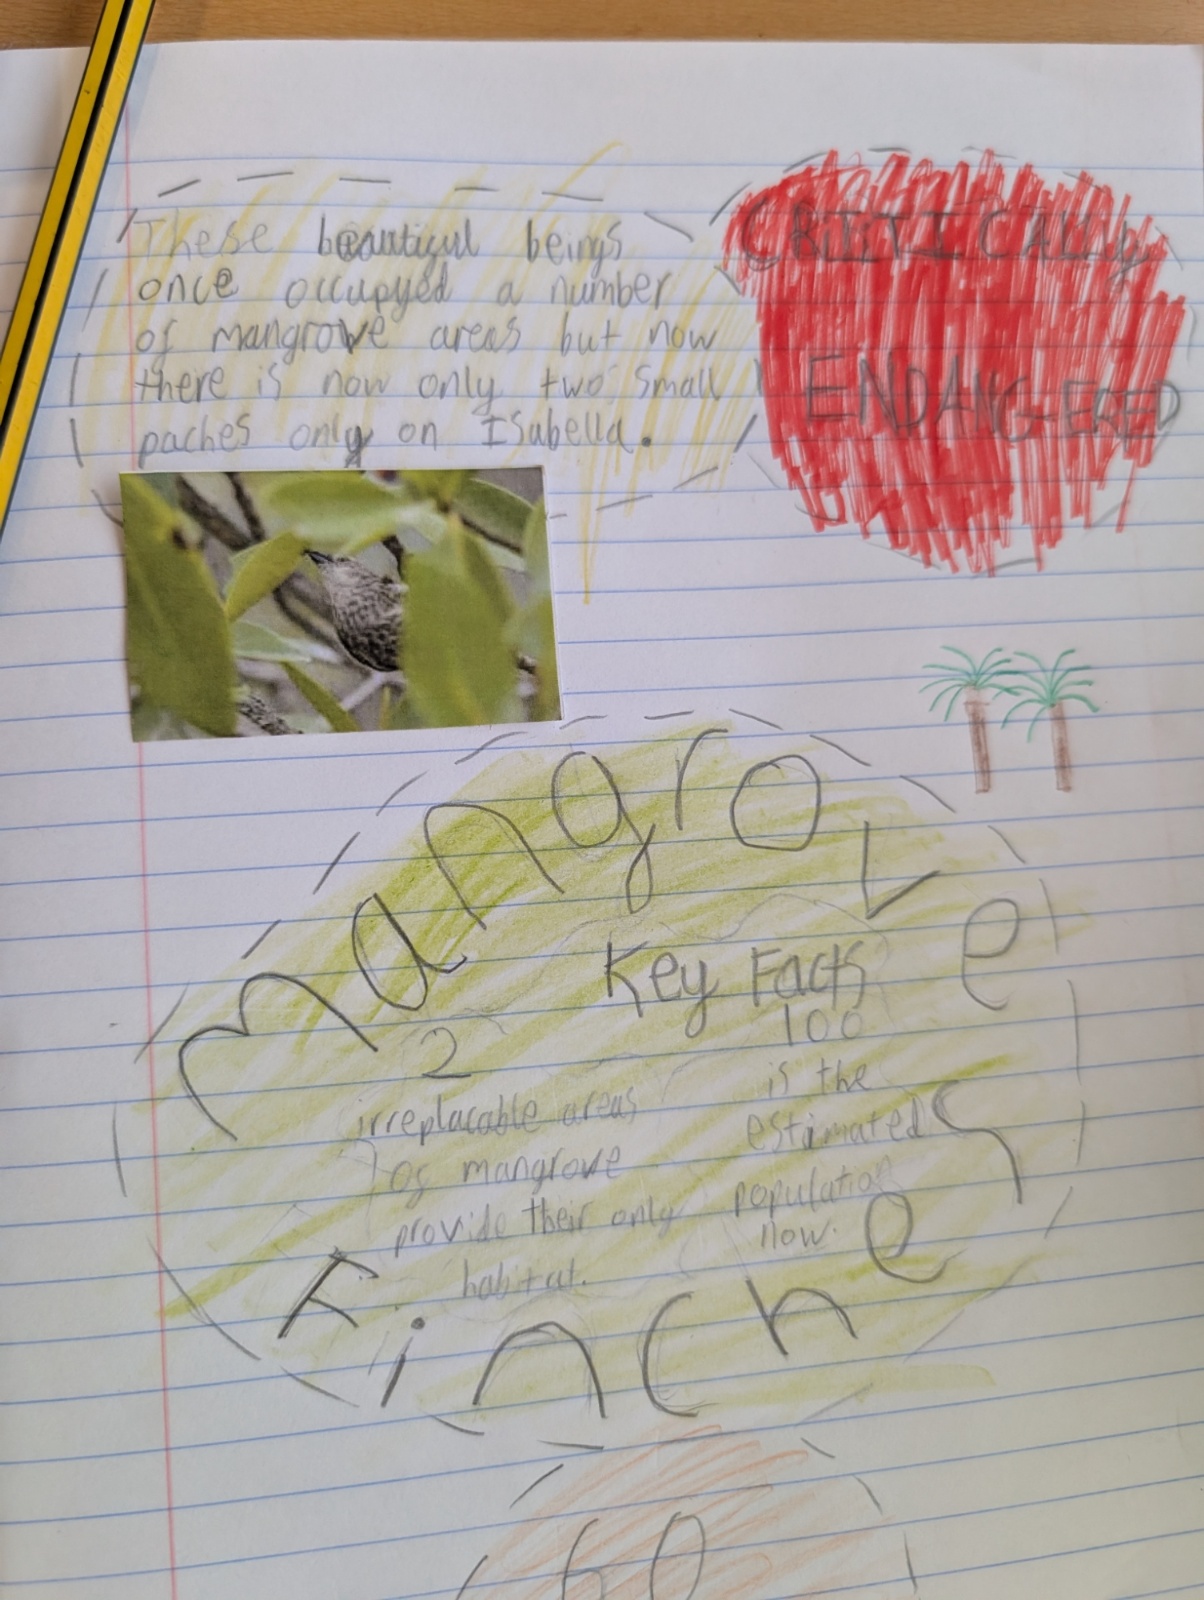 These beautiful beings
once occupyed a number
of mangrove areas but now
there is now only two small
paches only on Isabella.
CRITICALLy
ENDANGERED
Mangrove
Key Facts
2
irreplacable areas
of mangrove
provide their only
habitat.
100
is the
estimated
population
now.
Finches
60